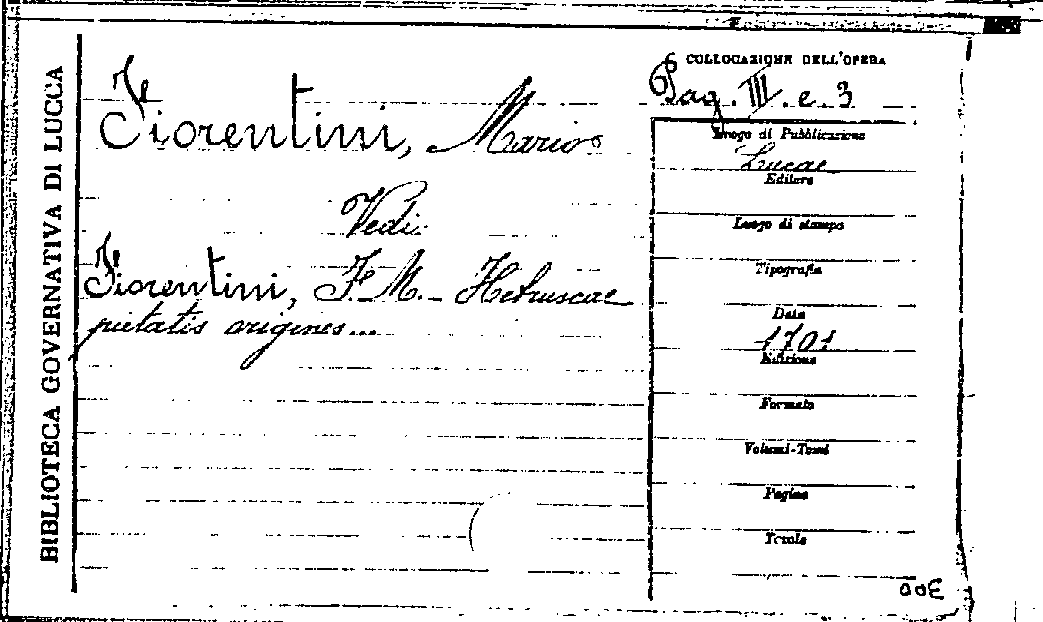 BIBLIOTECA GOVERNATIVA DI LUCCA
Fiorentini, Mario
Vedi
Fiorentini, F. M. - Hetruscae
pietatis origines...
COLLOCAZIONE DELL'OPERA
Pag. III. e. 3
Luogo di Pubblicazione
Lucae
Editore
Luogo di stampa
Tipografia
Data
1701
Edizione
Formato
Volumi-Tomi
Pagine
Tavole